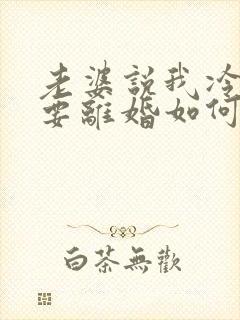 老婆說我冷
要離婚如何
白茶無歡